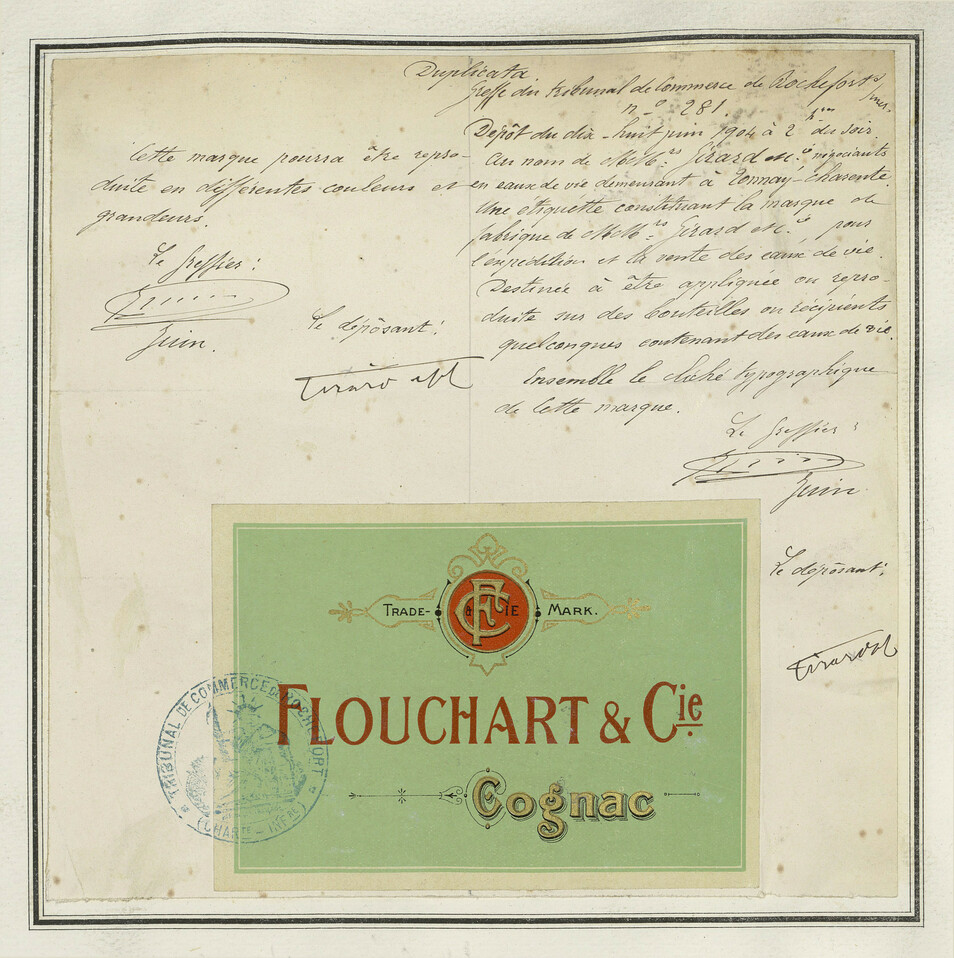 Duplicata
Greffe du tribunal de Commerce de Rochefort s/mer.
n.º 281.
Dépôt du dix-huit juin 1904 à 2 hres du soir.
Au nom de MM.rs Girard et Cie négociants
en eaux de vie demeurant à Tonnay-Charente.
Une étiquette constituant la marque de
fabrique de MM.rs Girard et Cie pour
l'expédition et la vente des eaux de vie.
Destinée à être appliquée ou repro-
duite sur des bouteilles ou récipients
quelconques contenant des eaux de vie.
Ensemble le cliché typographique
de cette marque.
Le Greffier:
Juin
Le dépôsant:
Cette marque pourra être repro-
duite en différentes couleurs et
grandeurs.
Le Greffier:
Juin.
Le dépôsant:
TRADE- & CIE MARK.
FLOUCHART & Cie
Cognac
TRIBUNAL DE COMMERCE DE ROCHEFORT
(CHARTE-INFRE)